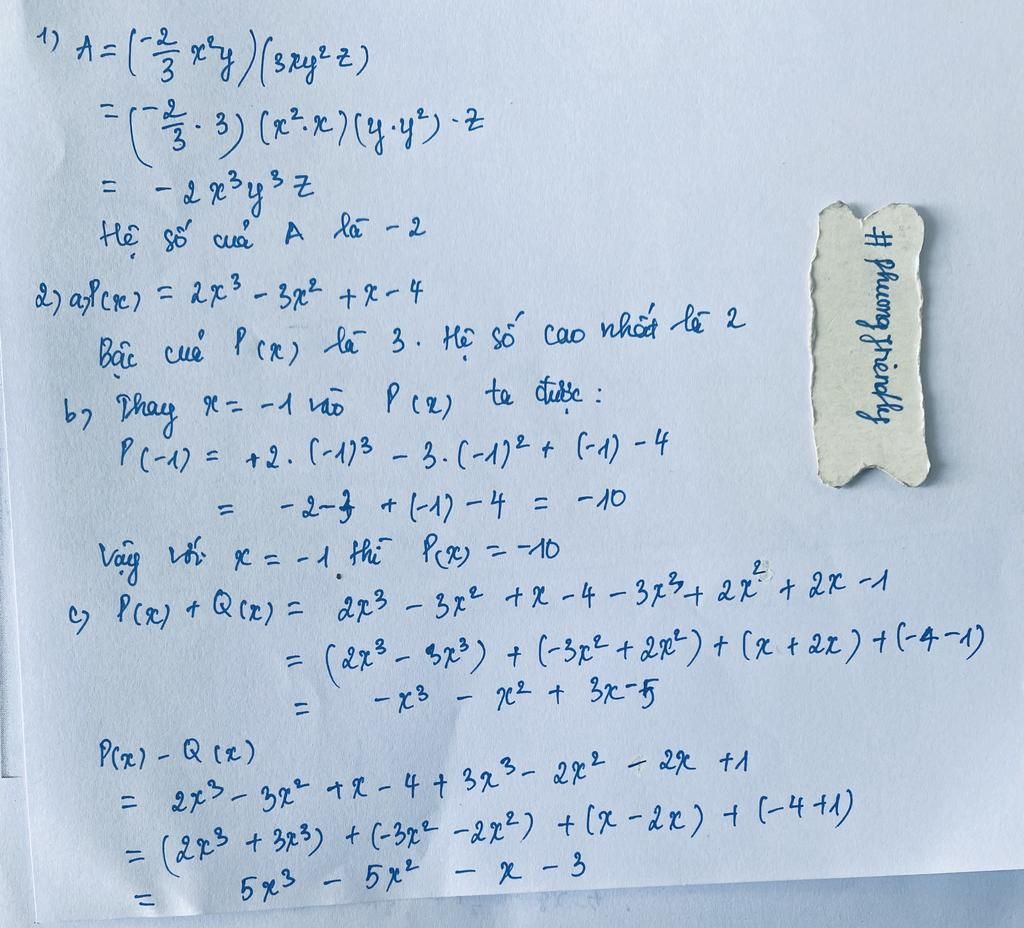 1) A = (-2/3 x²y)(3xy²z)
= (-2/3 · 3) (x²·x)(y·y²) · z
= -2x³y³z
Hệ số của A là -2
2) a, P(x) = 2x³ - 3x² + x - 4
Bậc của P(x) là 3. Hệ số cao nhất là 2
b, Thay x = -1 vào P(x) ta được :
P(-1) = +2. (-1)³ - 3. (-1)² + (-1) - 4
= -2-3 + (-1) - 4 = -10
Vậy với x = -1 thì P(x) = -10
c, P(x) + Q(x) = 2x³ - 3x² + x - 4 - 3x³ + 2x² + 2x - 1
= (2x³ - 3x³) + (-3x² + 2x²) + (x + 2x) + (-4-1)
= -x³ - x² + 3x-5
P(x) - Q(x)
= 2x³ - 3x² + x - 4 + 3x³ - 2x² - 2x + 1
= (2x³ + 3x³) + (-3x² - 2x²) + (x - 2x) + (-4+1)
= 5x³ - 5x² - x - 3
# phuongfriendly